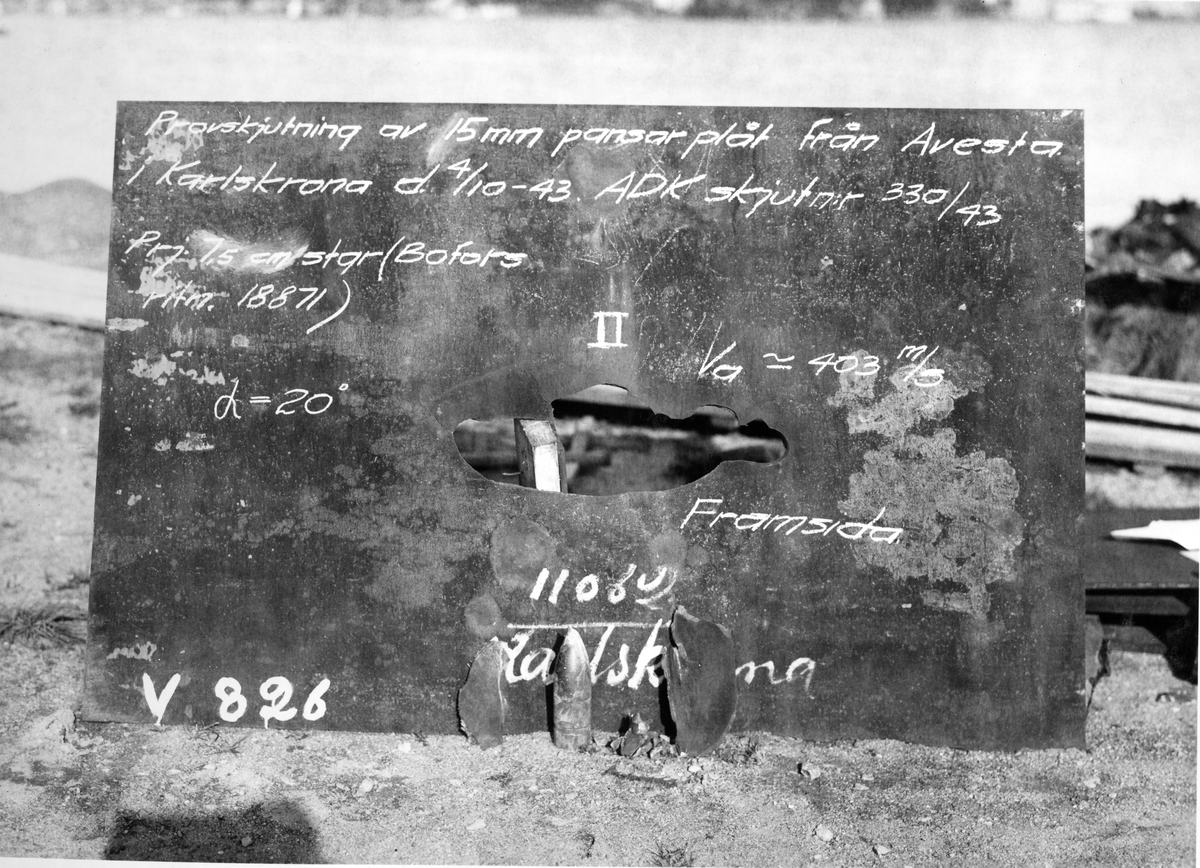 Provskjutning av 15mm pansarplåt från Avesta.
i Karlskrona d. 4/10-43. ADK skjutn:r 330/43
Prj. 15 cm sfgr (Bofors
ritn. 18871)
II
Va ≃ 403 m/s
α = 20°
Framsida.
V 826